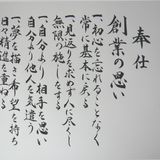 奉仕
創業の思い
一、初心を忘れることなく
常に基本に戻る
一、見返を求めず人に尽くし
無限の施しをする
一、自分より相手を思い
自分より他人を気遣う
一、夢を描き希望を持ち
日々精進を重ねる